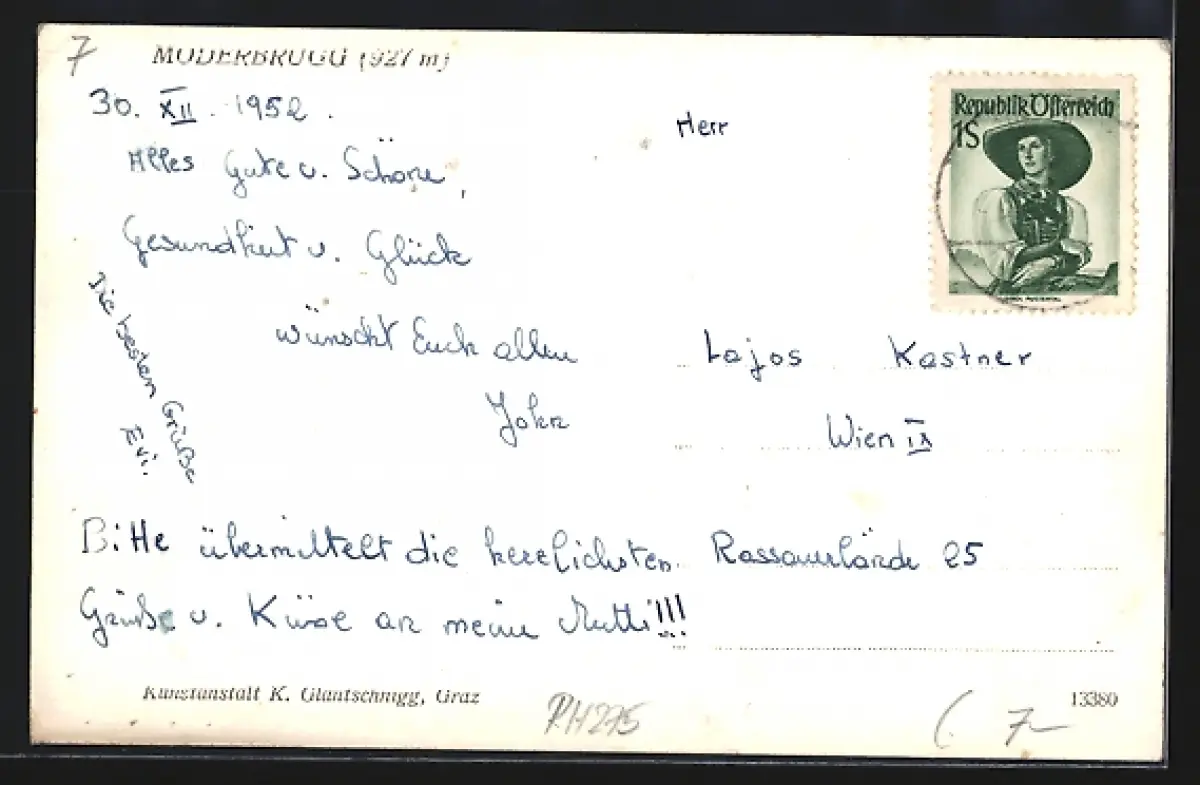 7
MODERBRUGG (927 m)
30. XII. 1952.
Alles Gute u. Schöne,
Gesundheit u. Glück
wünscht Euch allen
Die besten Grüße
Evi.
Bitte übermittelt die herzlichsten
Grüße u. Küsse an meine Mutti!!!
Kunstanstalt K. Glantschnigg, Graz
PH275
Republik Österreich
1S
Herr
Lajos Kastner
Wien IX
25
13380
7